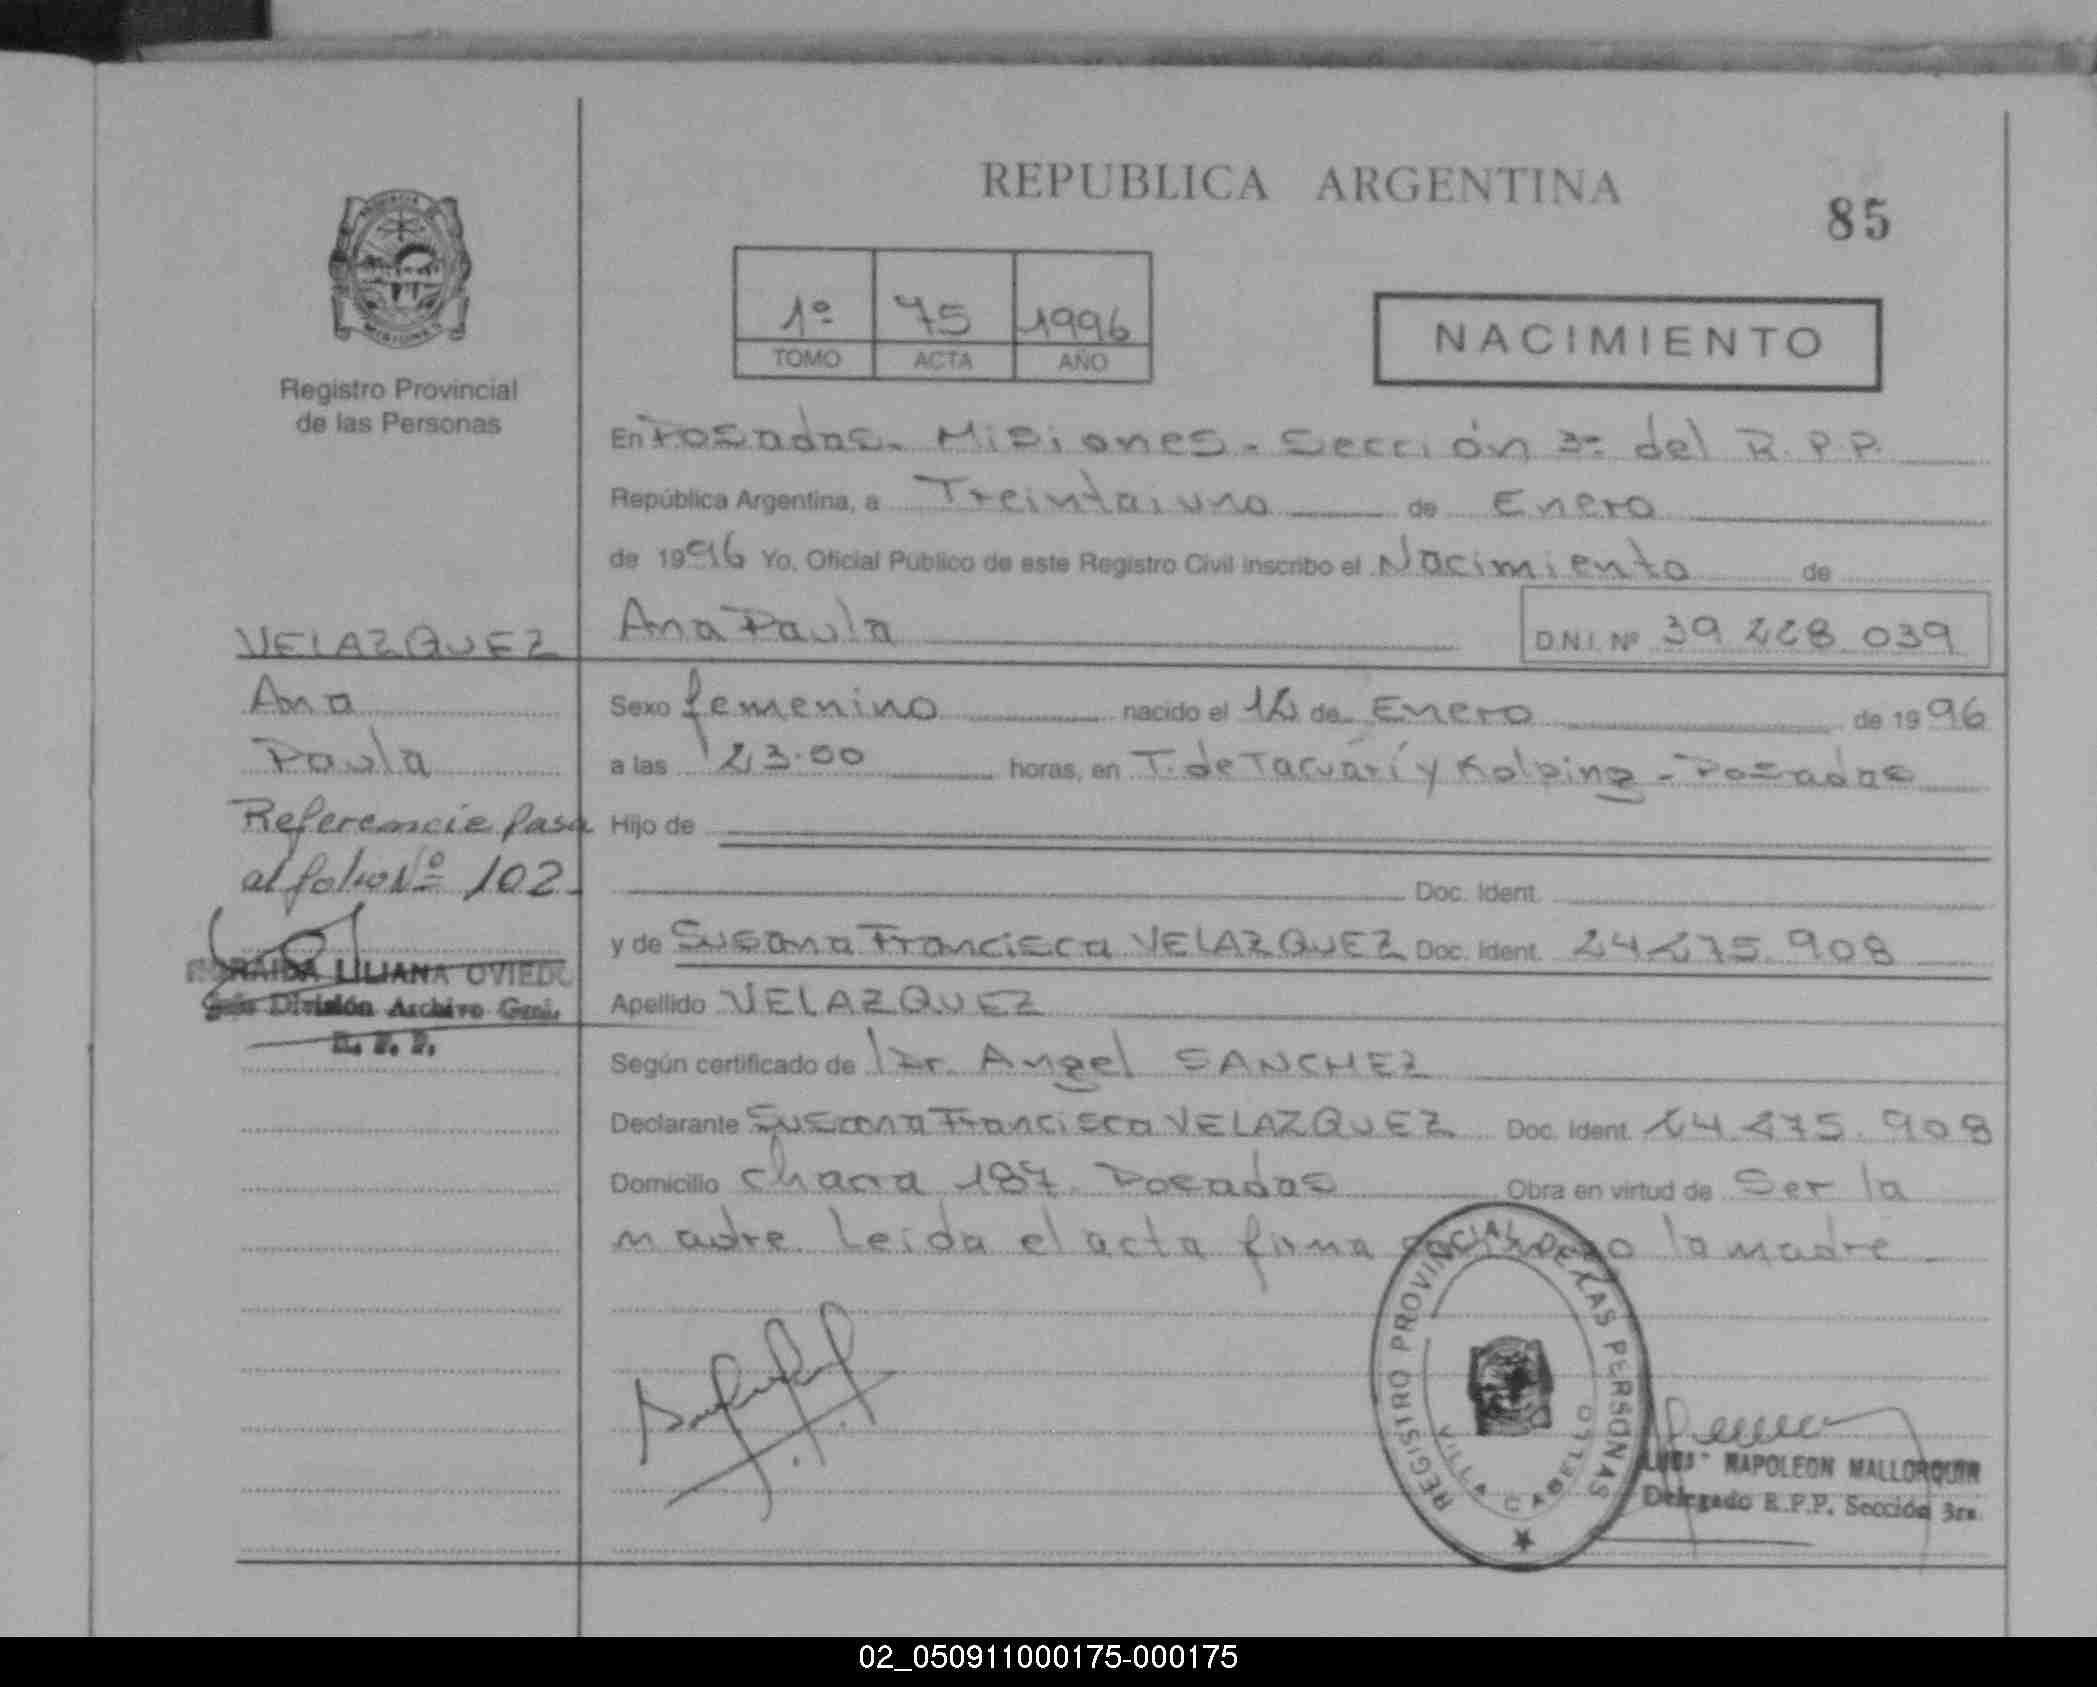 REPUBLICA ARGENTINA
85
1º 75 1996
TOMO ACTA AÑO
NACIMIENTO
Registro Provincial
de las Personas
En Posadas. Misiones. Sección 3º del R.P.P.
República Argentina, a Treintaiuno de Enero
de 1996 Yo, Oficial Público de este Registro Civil inscribo el Nacimiento de
Ana Paula D.N.I. Nº 39 228 039
VELAZQUEZ
Ana
Paula
Referencia pasa
al folio Nº 102.
LILIANA OVIEDO
División Archivo Gral.
R. P. P.
Sexo femenino nacido el de Enero de 1996
a las 23.00 horas, en T. de Tacuarí y Kolping - Posadas
Hijo de
Doc. Ident.
y de Susana Francisca VELAZQUEZ Doc. Ident. 24 275. 908
Apellido VELAZQUEZ
Según certificado de Dr. Angel SANCHEZ
Declarante Susana Francisca VELAZQUEZ Doc. Ident. 24.275.908
Domicilio chacra 187. Posadas Obra en virtud de Ser la
madre. Leída el acta firma la madre
REGISTRO PROVINCIAL DE LAS PERSONAS
VILLA CABELLO
NAPOLEON MALLORQUIN
Delegado R.P.P. Sección 3ra.
02_050911000175-000175